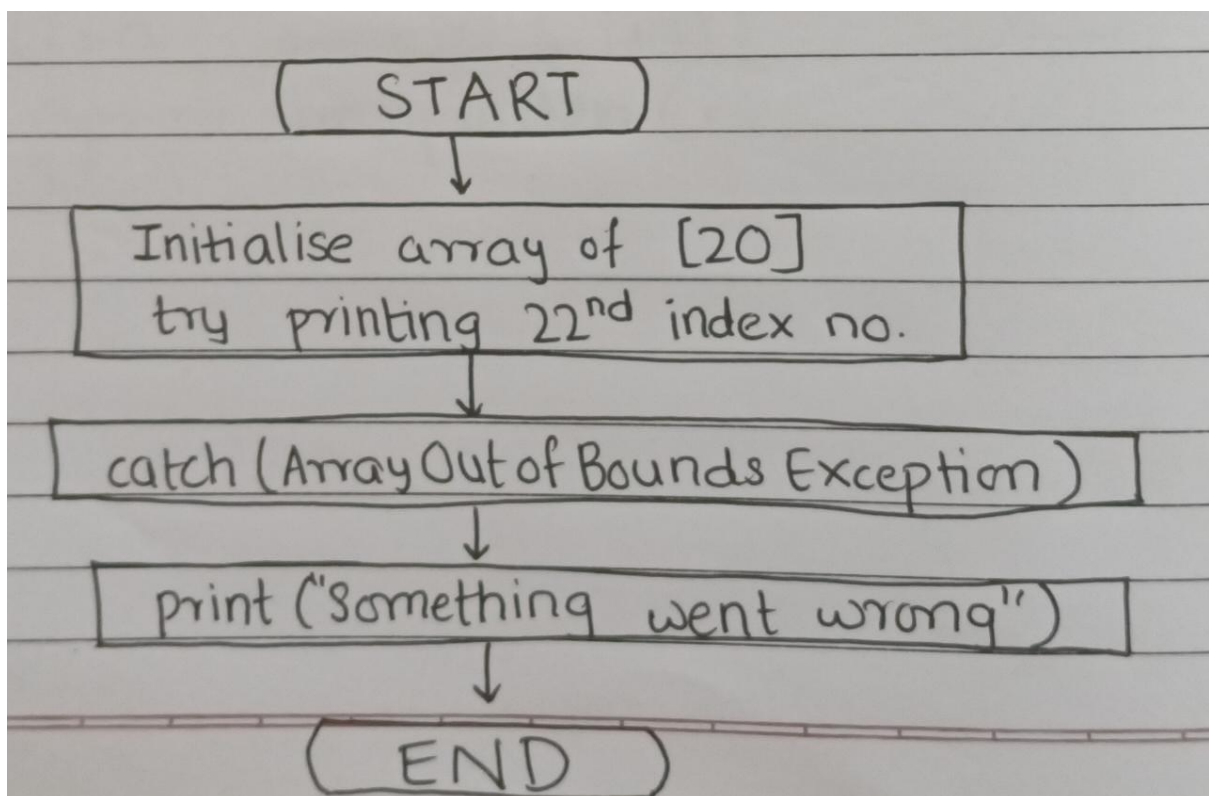 START
Initialise array of [20]
try printing 22nd index no.
catch (Array Out of Bounds Exception)
print ("Something went wrong")
END